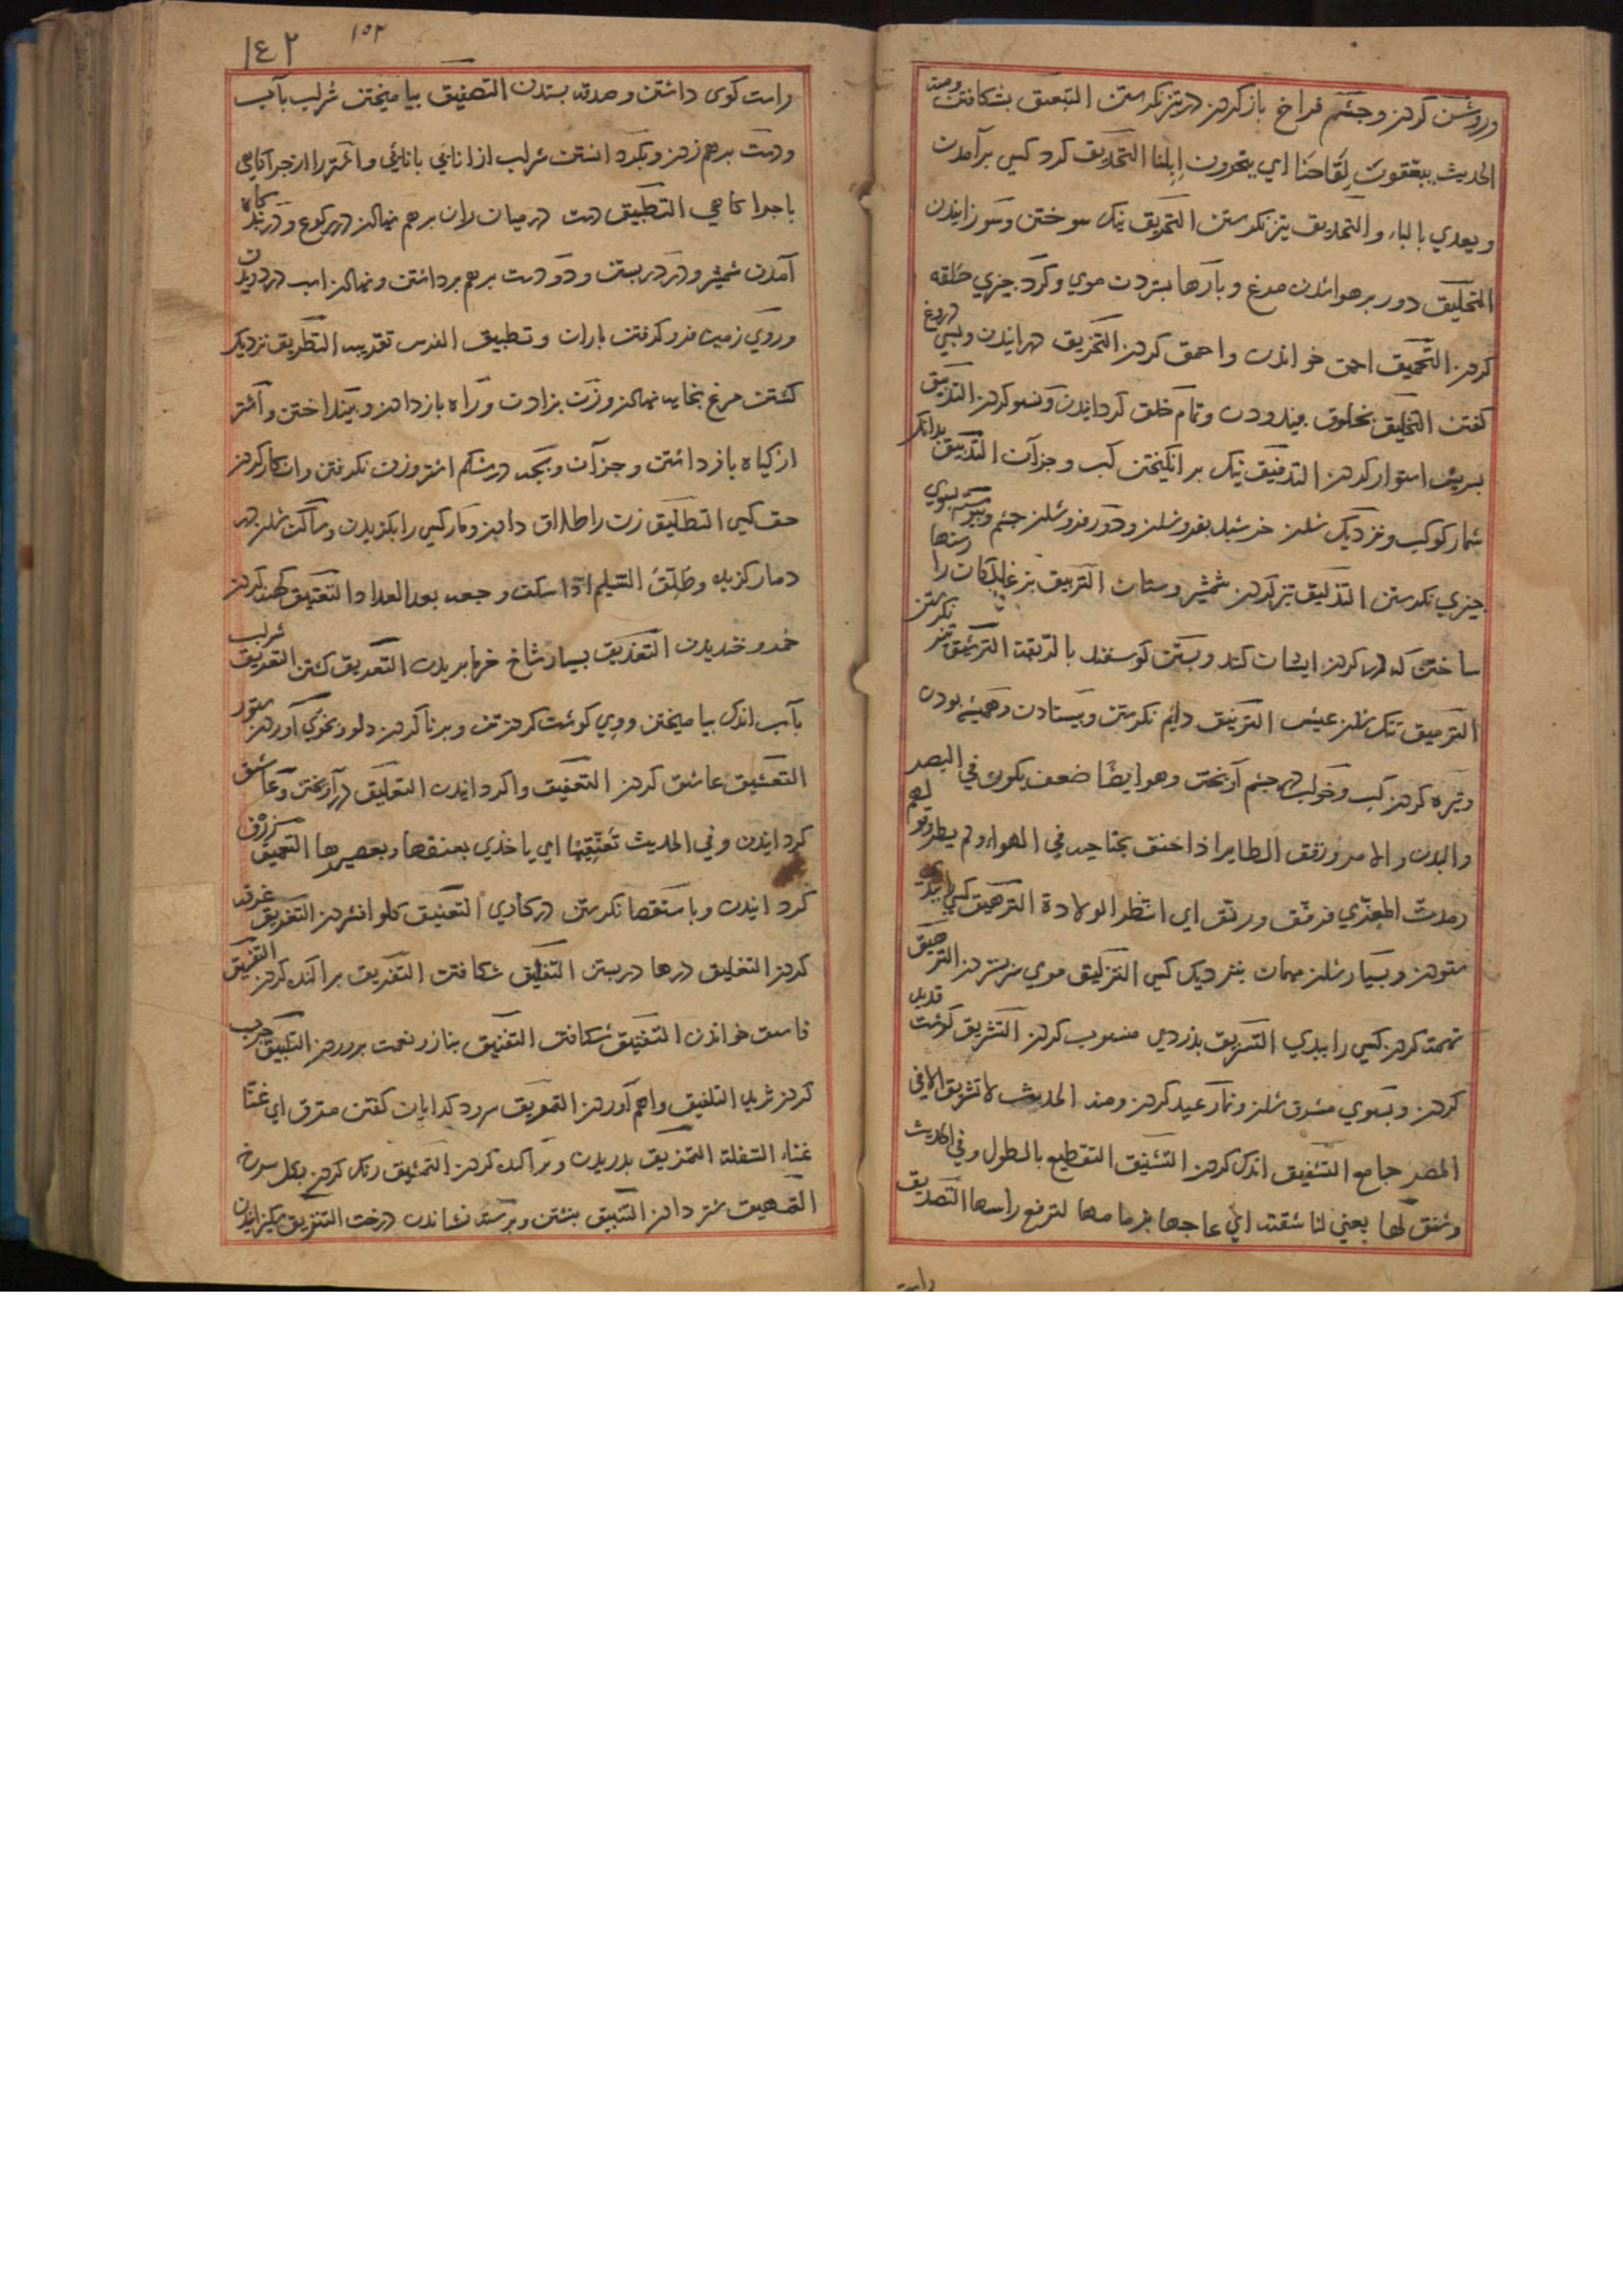 وروشن کردن وچشم فراخ باز کردن در تیز نکرستن التبعق بشکافتن ومنه
الحدیث یبعّقون لِقَاحَنا ای ینحرون اِبلنا التحدیق کرد کسی برآمدن
ویعدی بالباء والتحدیق تیز نکرستن التحریق نیک سوختن وسوزانیدن
التحلیق دور برهوا شدن مرغ وبارها ستردن موی وکرد چیزی حلقه
کردن التحمیق احمق خواندن واحمق کردن التخریق درانیدن وبسی دروغ
کفتن التخلیق بخلوق بیندودن وتمام خلق کردانیدن ونسو کردن التدبیق
بسریش استوار کردن التدفیق نیک برانکیختن آب وجزآن التدنیق بدانک
شمار کوکب ونزدیک شدن خرشید بفروشدن ودور فروشدن چشم وپیوسته بسوی
چیزی نکرستن التذلیق تیز کردن شمشیر وسنان التربیق بزغالکان را رسنها
ساختن که در کردن ایشان کنند وبستن کوسفند بالربقة الترشیق تیز نکرستن
الترمیق تنک شدن عیش الترنیق دایم نکرستن وبیستادن وهمیشه بودن
وتیره کردن آب وخواب در چشم آویختن وهو ایضًا ضعف یکون فی البصر
والبدن والامر ورنّق الطایر اذا خفق بجناحیه فی الهواء ولم یطر وقولهم
رمدت المعزی فرنّق ورنّق ای انتظر الولادة الترهیق کسی را ببدی
ستودن وبسیار شدن مهمان بنزدیک کسی التزلیق موی سر ستردن الترهیق
تهمت کردن کسی را ببدی التسریق بدزدی منسوب کردن التشریق کوشت قدید
کردن وبسوی مشرق شدن ونماز عید کردن ومنه الحدیث لا تشریق الا فی
المصر جامع التشفیق اندک کردن التشنیق التقطیع بالطول وفی الحدیث
وشنق لها یعنی لنا شقته ای عاجها بزمامها لترفع راسها التصدیق
راست
١٤٢
١٥٢
راست کوی داشتن وصدقه بستدن التصفیق بیامیختن شراب بآب
ودست برهم زدن وبکرد انستن شراب از انائی بانائی واشتر را از چراکاهی
باچراکاهی التطبیق دست در میان ران برهم نهادن در رکوع ودر بند کاه
آمدن شمشیر ودر در بستن ودو دست برهم برداشتن ونهادن اسب در دویدن
وروی زمین فرو کرفتن باران وتطبیق الفرس تقریبه التطریق نزدیک
کشتن مرغ بخایه نهادن وزن بزادن وراه باز دادن وبینداختن واشتر
از کیاه باز داشتن وجزآن وبچه در شکم اشتر وزن نکرفتن وانکار کردن
حق کسی التطلیق زن را طلاق دادن ومار کسی را بکزیدن وساکن شدن درد
دمار کزیده وطلّق السلیم اذا سکنت وجعه بعد العداد التعتیق کهنه کردن
خمر وخندیدن التعذیق بسیار شاخ خرما بریدن التعریق کشتن التعریق شراب
بآب اندک بیامیختن وبی کوشت کردن تن وپر ناکردن دلو وبخوی آوردن ستور
التعشیق عاشق کردن التعفیق واکردانیدن التعلیق درآویختن وعاشق
کردانیدن وفی الحدیث تَعَنّقِیْها ای یاخذی بعنقها وبعصریها التعمیق ژرف
کردانیدن وباستقصا نکرستن در کاری التعنیق کلو افشردن التغریق غرقه
کردن التغلیق درها در بستن التفلیق شکافتن التفریق پراکنده کردن التفسیق
فاسق خواندن التفتیق شکافتن التفنیق بناز ونعمت پروردن التلبیق چرب
کردن ثرید التلفیق واهم آوردن التمریق سرود کدایان کفتن مترق ای غنّا
غناء السفلة التمزیق بدریدن وپراکنده کردن التمشیق رنک کردن بکل سرخ
التنبیق بنشتن وبر رسته نشاندن درخت التنزیق